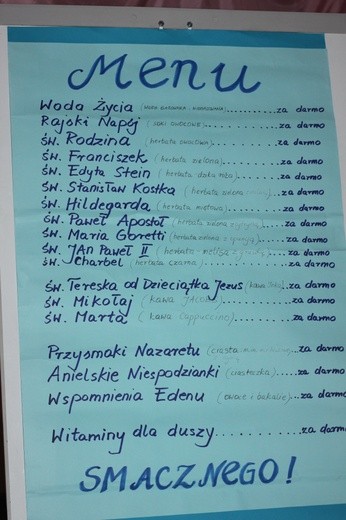 Menu
Woda Życia (woda gazowana i niegazowana)........za darmo
Rajski Napój (soki owocowe).............za darmo
św. Rodzina (herbata owocowa)............za darmo
św. Franciszek (herbata zielona)..........za darmo
św. Edyta Stein (herbata dzika róża)........za darmo
św. Stanisław Kostka (herbata zielona......za darmo
św. Hildegarda (herbata miętowa)..........za darmo
św. Paweł Apostoł (herbata zielona.........za darmo
św. Maria Goretti (herbata zielona.........za darmo
św. JAn Paweł II (herbata melisa..........za darmo
św. Charbel (herbata czarna).............za darmo
św. Tereska od Dzieciątka Jezus (kawa.....za darmo
św. Mikołaj (kawa Jacobs)............za darmo
św. Marta (kawa Cappuccino).........za darmo
Przysmaki Nazaretu (ciasta.........za darmo
Anielskie Niespodzianki (ciasteczka)......za darmo
Wspomnienia Edenu (owoce i bakalie)...za darmo
Witaminy dla duszy...........za darmo
SMACZNEGO!